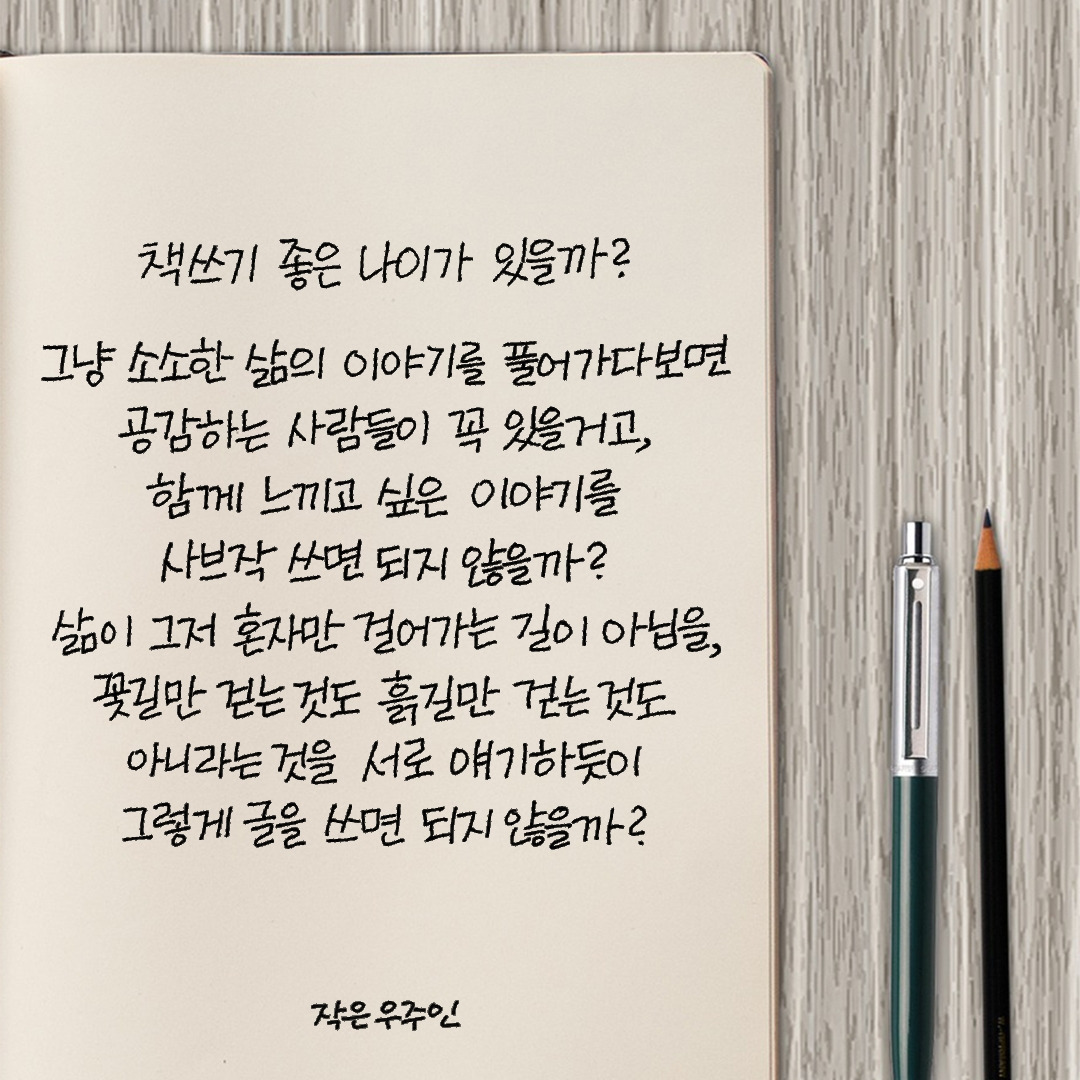 책쓰기 좋은 나이가 있을까?
그냥 소소한 삶의 이야기를 풀어가다보면
공감하는 사람들이 꼭 있을거고,
함께 느끼고 싶은 이야기를
사브작 쓰면 되지 않을까?
삶이 그저 혼자만 걸어가는 길이 아님을,
꽃길만 걷는 것도 흙길만 걷는 것도
아니라는 것을 서로 얘기하듯이
그렇게 글을 쓰면 되지 않을까?
작은 우주인